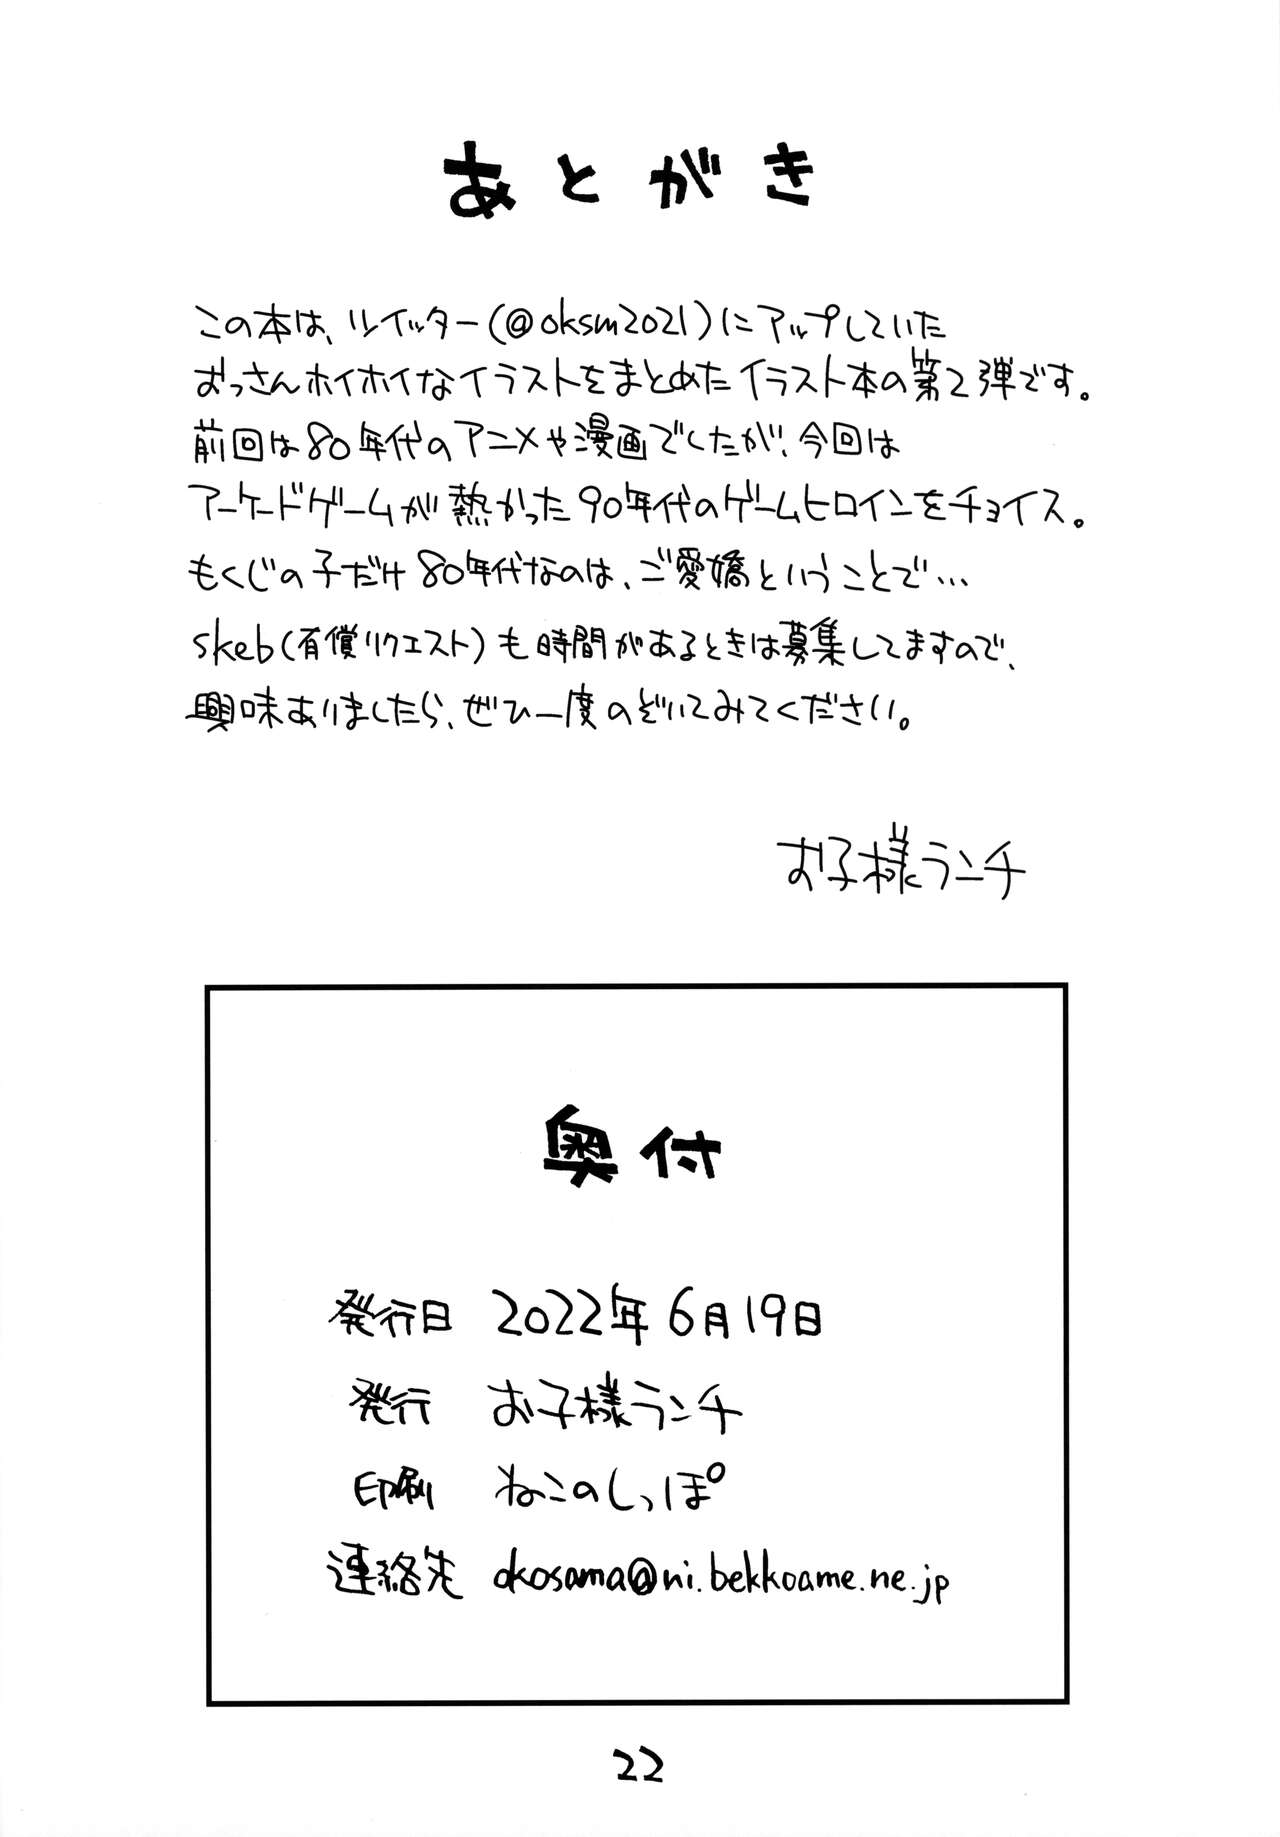 あとがき
この本は、ツイッター(@oksm2021)にアップしていた
おっさんホイホイなイラストをまとめたイラスト本の第2弾です。
前回は80年代のアニメや漫画でしたが、今回は
アーケードゲームが熱かった90年代のゲームヒロインをチョイス。
もくじの子だけ80年代なのは、ご愛嬌ということで…
skeb(有償リクエスト)も時間があるときは募集してますので、
興味ありましたら、ぜひ一度のぞいてみてください。
お子様ランチ
奥付
発行日 2022年6月19日
発行 お子様ランチ
印刷 ねこのしっぽ
連絡先 okosama@ni.bekkoame.ne.jp
22